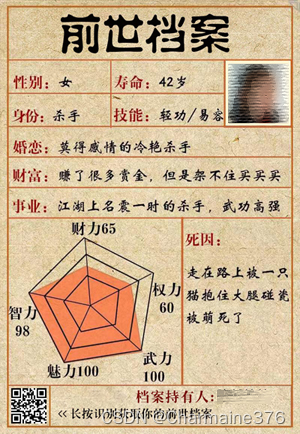 前世档案
性别：女
寿命：42岁
身份：杀手
技能：轻功/易容
婚恋：莫得感情的冷艳杀手
财富：赚了很多赏金，但是架不住买买买
事业：江湖上名震一时的杀手，武功高强
财力65
权力
60
武力
100
魅力100
智力
98
死因：
走在路上被一只
猫抱住大腿碰瓷
被萌死了
档案持有人：
<<长按识别获取你的前世档案
CSDN @Charmaine376